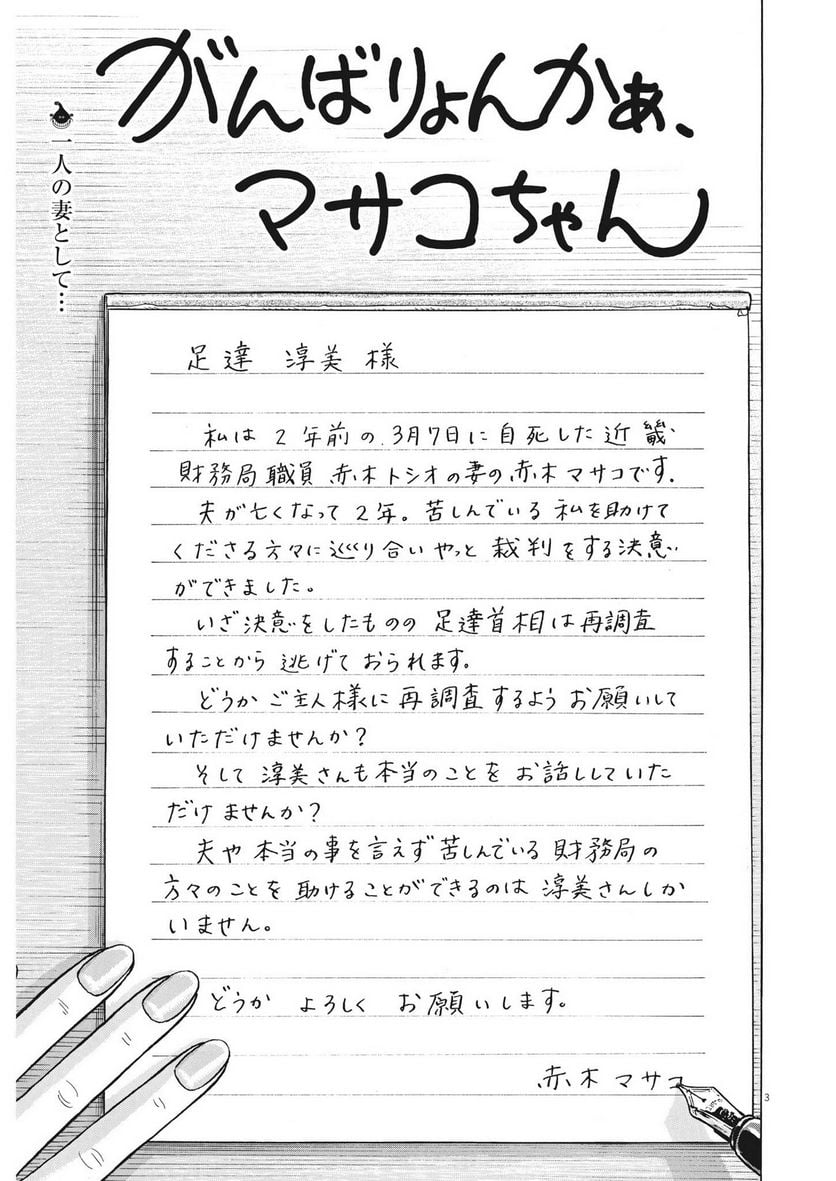 がんばりょんかぁ、
マサコちゃん
一人の妻として…
足達 淳美 様
私は 2年前の 3月7日に自死した近畿
財務局職員 赤木トシオの妻の赤木マサコです.
夫が亡くなって2年。苦しんでいる私を助けて
くださる方々に巡り合いやっと 裁判をする決意
ができました。
いざ決意をしたものの 足達首相は再調査
することから 逃げて おられます。
どうか ご主人様に 再調査するよう お願いして
いただけませんか?
そして 淳美さんも本当のことを お話ししていた
だけませんか?
夫や 本当の事を言えず苦しんでいる 財務局の
方々のことを 助けることができるのは 淳美さんしか
いません。
どうか よろしく お願いします。
赤木 マサコ
3